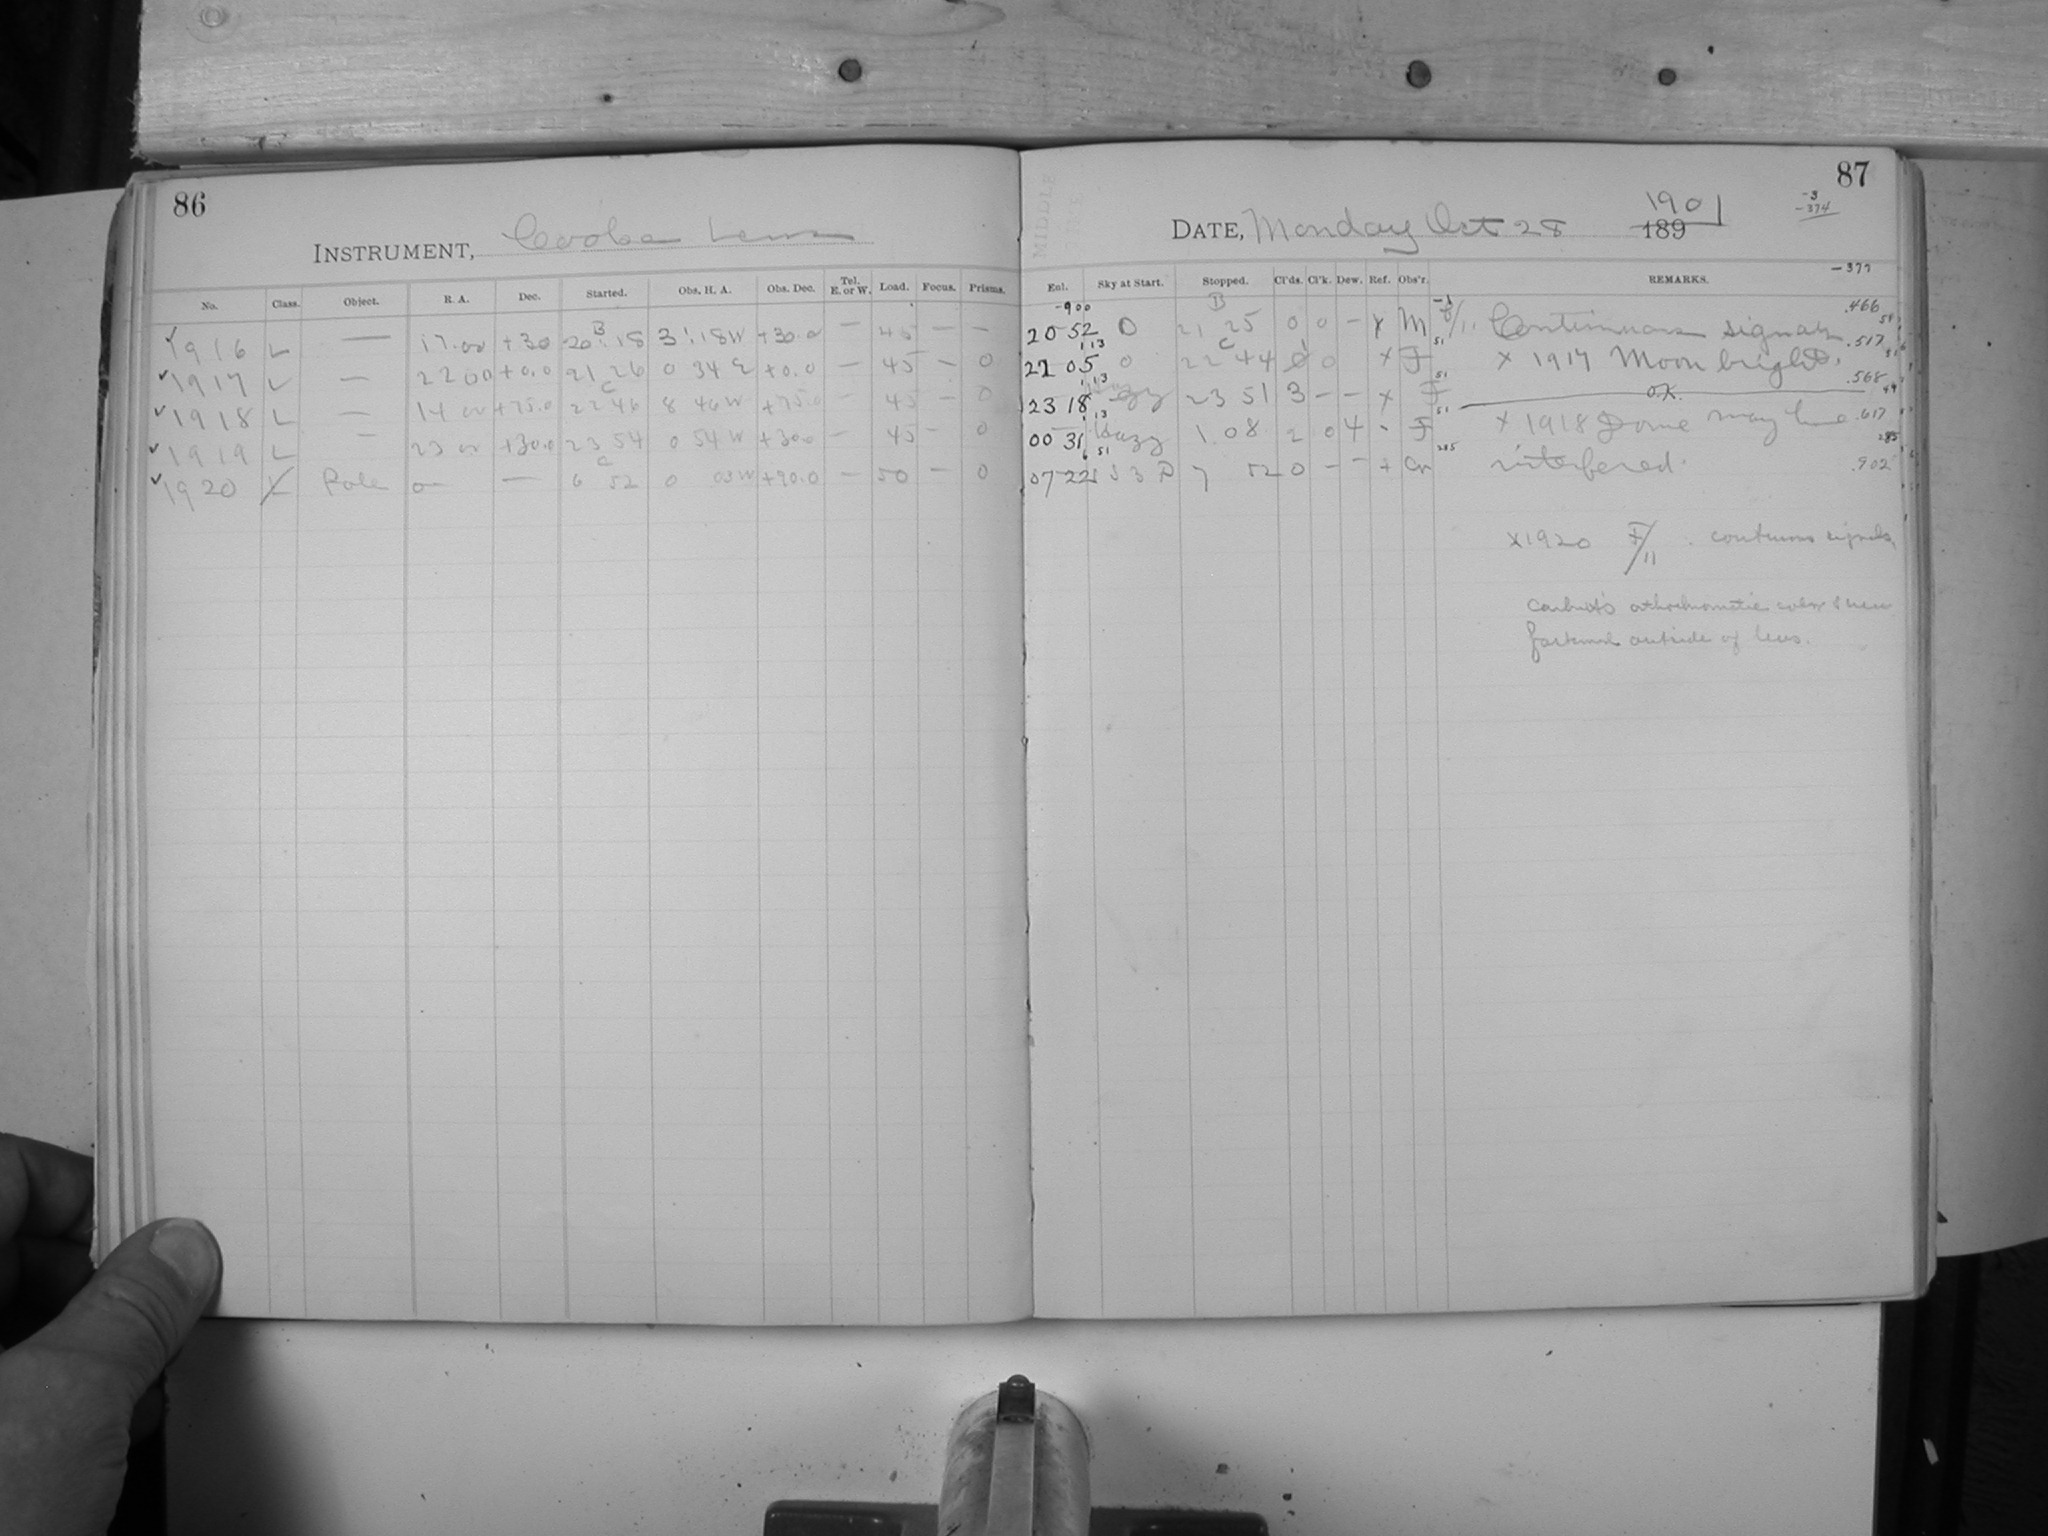 86
INSTRUMENT, Cooke Lens
No. Class. Object. R. A. Dec. Started. Obs. H. A. Obs. Dec. Tel. E. or W. Load. Focus. Prisms.
1916 L — 17.00 +30 20 18 3 18 W +30.0 — 45 — —
1917 L — 22 00 +0.0 21 26 0 34 E +0.0 — 45 — 0
1918 L — 14 00 +75.0 22 46 8 46 W +75.0 — 45 — 0
1919 L — 23 00 +30.0 23 54 0 54 W +30.0 — 45 — 0
1920 L Pole — 6 52 0 03 W +90.0 — 50 — 0
87
DATE, Monday Oct 28 1901
189
-3
-374
-377
Enl. Sky at Start. Stopped. Cl'ds. Cl'k. Dew. Ref. Obs'r. REMARKS.
-900
20 52 0 21 25 0 0 — x M F/11 Continuous signals .466
21 05 0 22 44 0 0 x F x 1917 Moon bright. .517
23 18 Hazy 23 51 3 — — x F O.K. .568
00 31 Hazy 1.08 2 0 4 - F x 1918 Dome may have .617
07 22 7 52 0 — — + interfered. .902
x1920 F/11. continuous signals.
Carbutt's orthochromatic color screen
fastened outside of lens.